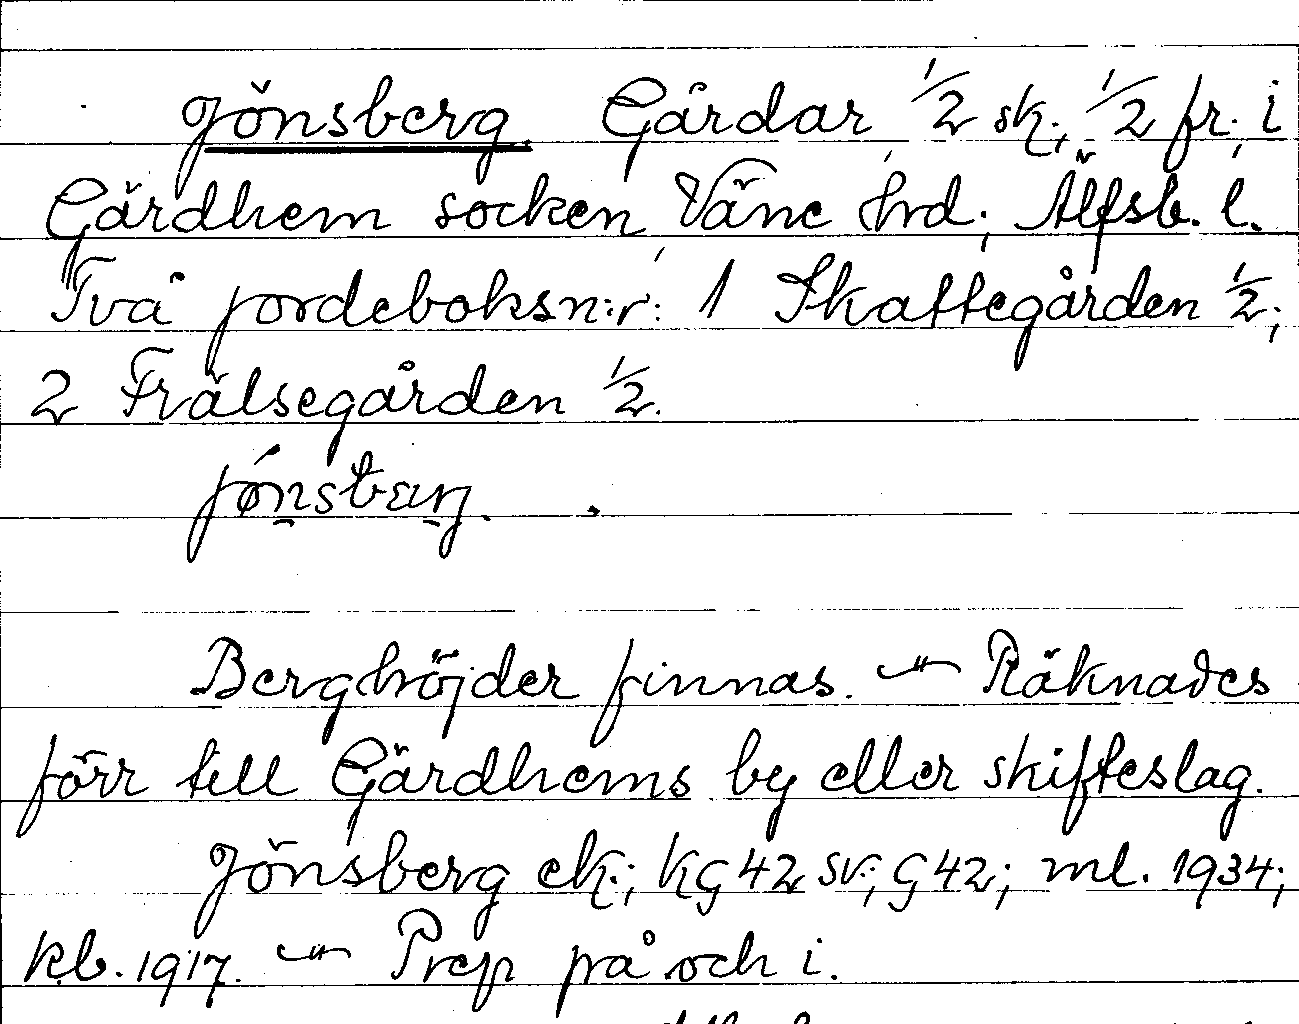 Jönsberg Gårdar 1/2 sk., 1/2 fr., i
Gärdhem socken, Väne hrd; Älfsb. l.
Två jordeboksn:r: 1 Skattegården 1/2;
2 Frälsegården 1/2.
Berghöjder finnas. — Räknades
förr till Gärdhems by eller skifteslag.
Jönsberg ek.; KG 42 sv.; G 42; ml. 1934;
kb. 1917. — Prep på och i.